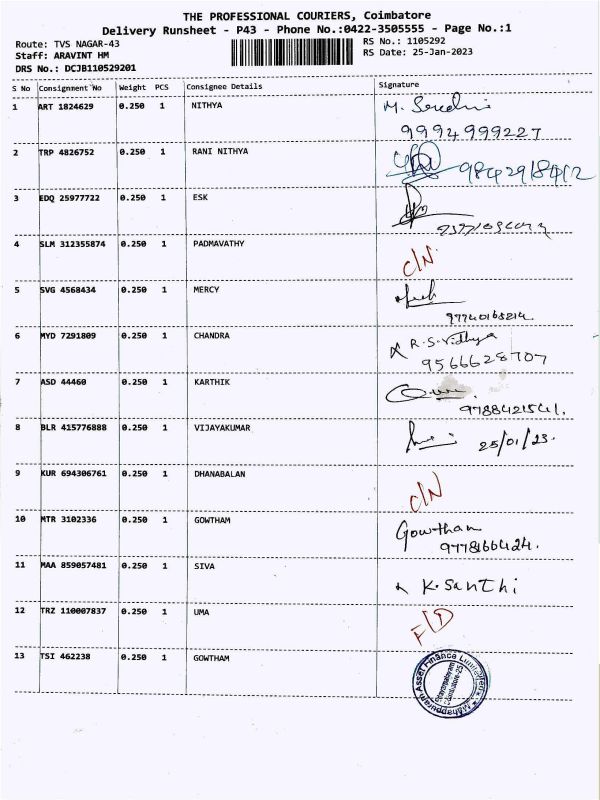 THE PROFESSIONAL COURIERS, Coimbatore
Delivery Runsheet - P43 - Phone No.:0422-3505555 - Page No.:1
Route: TVS NAGAR-43 RS No.: 1105292
Staff: ARAVINT HM RS Date: 25-Jan-2023
DRS No.: DCJB110529201
S No Consignment No Weight PCS Consignee Details Signature
1 ART 1824629 0.250 1 NITHYA M.
9994999227
2 TRP 4826752 0.250 1 RANI NITHYA 9842918412
3 EDQ 25977722 0.250 1 ESK
4 SLM 312355874 0.250 1 PADMAVATHY C/N
5 SVG 4568434 0.250 1 MERCY
97740165214.
6 MYD 7291809 0.250 1 CHANDRA R.S.Vidhya
9566628707
7 ASD 44460 0.250 1 KARTHIK
9788421541.
8 BLR 415776888 0.250 1 VIJAYAKUMAR 25/01/23.
9 KUR 694306761 0.250 1 DHANABALAN C/N
10 MTR 3102336 0.250 1 GOWTHAM Gowtham
9778166424.
11 MAA 859057481 0.250 1 SIVA K.Santhi
12 TRZ 110007837 0.250 1 UMA F/D
13 TSI 462238 0.250 1 GOWTHAM Asset Finance Limited